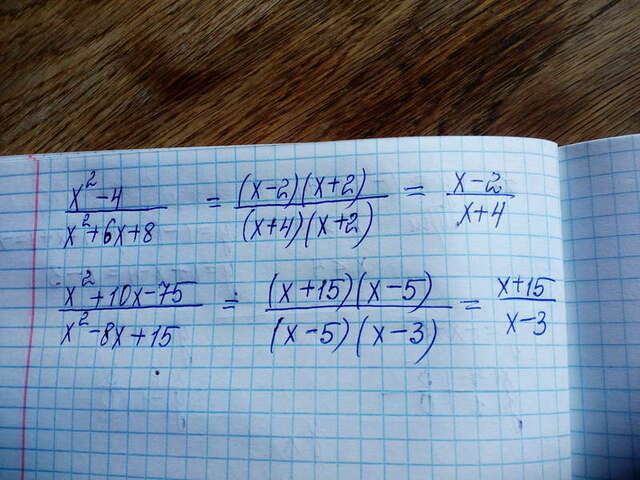 x² - 4 / x² + 6x + 8 = (x - 2)(x + 2) / (x + 4)(x + 2) = x - 2 / x + 4
x² + 10x - 75 / x² - 8x + 15 = (x + 15)(x - 5) / (x - 5)(x - 3) = x + 15 / x - 3